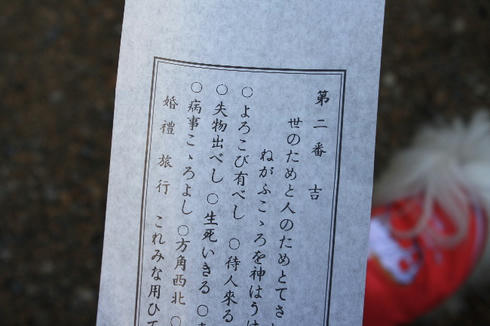 第二番吉
世のためと人のためとてさ
ねがふこゝろを神はうけ
○よろこび有べし ○待人來る
○失物出べし ○生死いきる ○
○病事こゝろよし ○方角西北 ○
婚禮 旅行 これみな用ひて